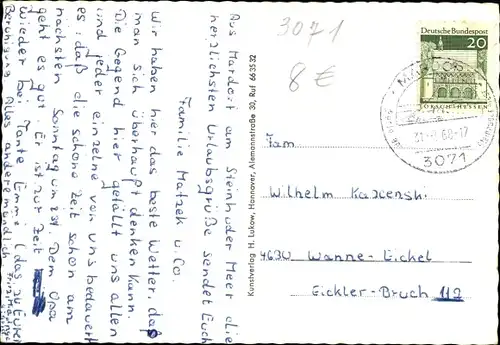 3071
8 €
Aus Mardorf am Steinhuder Meer die
herzlichsten Urlaubsgrüße sendet Euch
Familie Matzek u. Co.
Wir haben hier das beste Wetter, daß
man sich überhaupt denken kann.
Die Gegend hier gefällt uns allen
und jeder einzelne von uns bedauert
es, daß die schöne Zeit schon am
nächsten Sonntag um ist. Dem Opa
geht es gut. Er ist zur Zeit
wieder bei Tante Emmi (das zu Eurer
Beruhigung) Alles andere mündlich
Kunstverlag H. Lukow, Hannover, Alemannstraße 30, Ruf 66 35 32
Deutsche Bundespost
20
LORSCH/HESSEN
MARDORF
31.-7.68-17
3071
Fam.
Wilhelm
4630 Wanne-Eickel
Eickler-Bruch 112